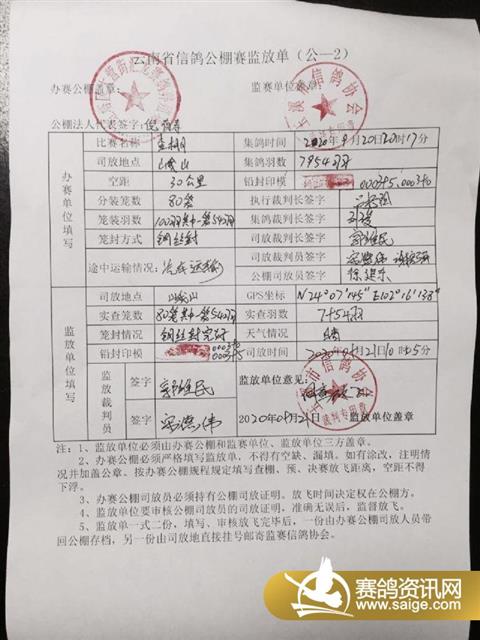 云南省信鸽公棚赛监放单（公—2）
办赛公棚盖章：
监赛单位盖章：
玉溪市信鸽协会
公棚法人代表签字：
办赛单位填写
比赛名称
集鸽时间 2020年9月20日20时17分
司放地点 峨山
集鸽羽数 7954羽
空距 30公里
铅封印模 000395、000390
分装笼数 80笼
执行裁判长签字
笼装羽数 100羽其中一笼54羽
集鸽裁判长签字
笼封方式 钢丝封
司放裁判长签字
途中运输情况：
司放裁判员签字
公棚司放员签字 徐建东
监放单位填写
司放地点 峨山
GPS坐标 N24°07'45" E102°16'138"
实查笼数 80笼其中一笼54羽
实查羽数 7954羽
笼封情况 钢丝封完好
天气情况 晴
铅封印模
司放时间 2020年9月21日
监放裁判员
签字
监放单位意见：
签字
2020年09月21日 监放单位盖章
裁判专用章
注：1、监放单位必须由办赛公棚和监赛单位、监放单位三方盖章。
2、办赛公棚必须严格填写监放单，不得有空缺、漏填。如有涂改，注明情
况并加盖公章。按办赛公棚规程规定填写查棚、预、决赛放飞距离，空距不得
下浮。
3、办赛公棚司放员必须持有公棚司放证明。放飞时间决定权在公棚方。
4、监放单位要审核公棚司放员的司放证明，准确无误后，监督放飞。
5、监放单一式二份，填写、审核放飞完毕后，一份由办赛公棚司放人员带
回公棚存档，另一份由司放地直接挂号邮寄监赛信鸽协会。
赛鸽资讯网
www.saige.com